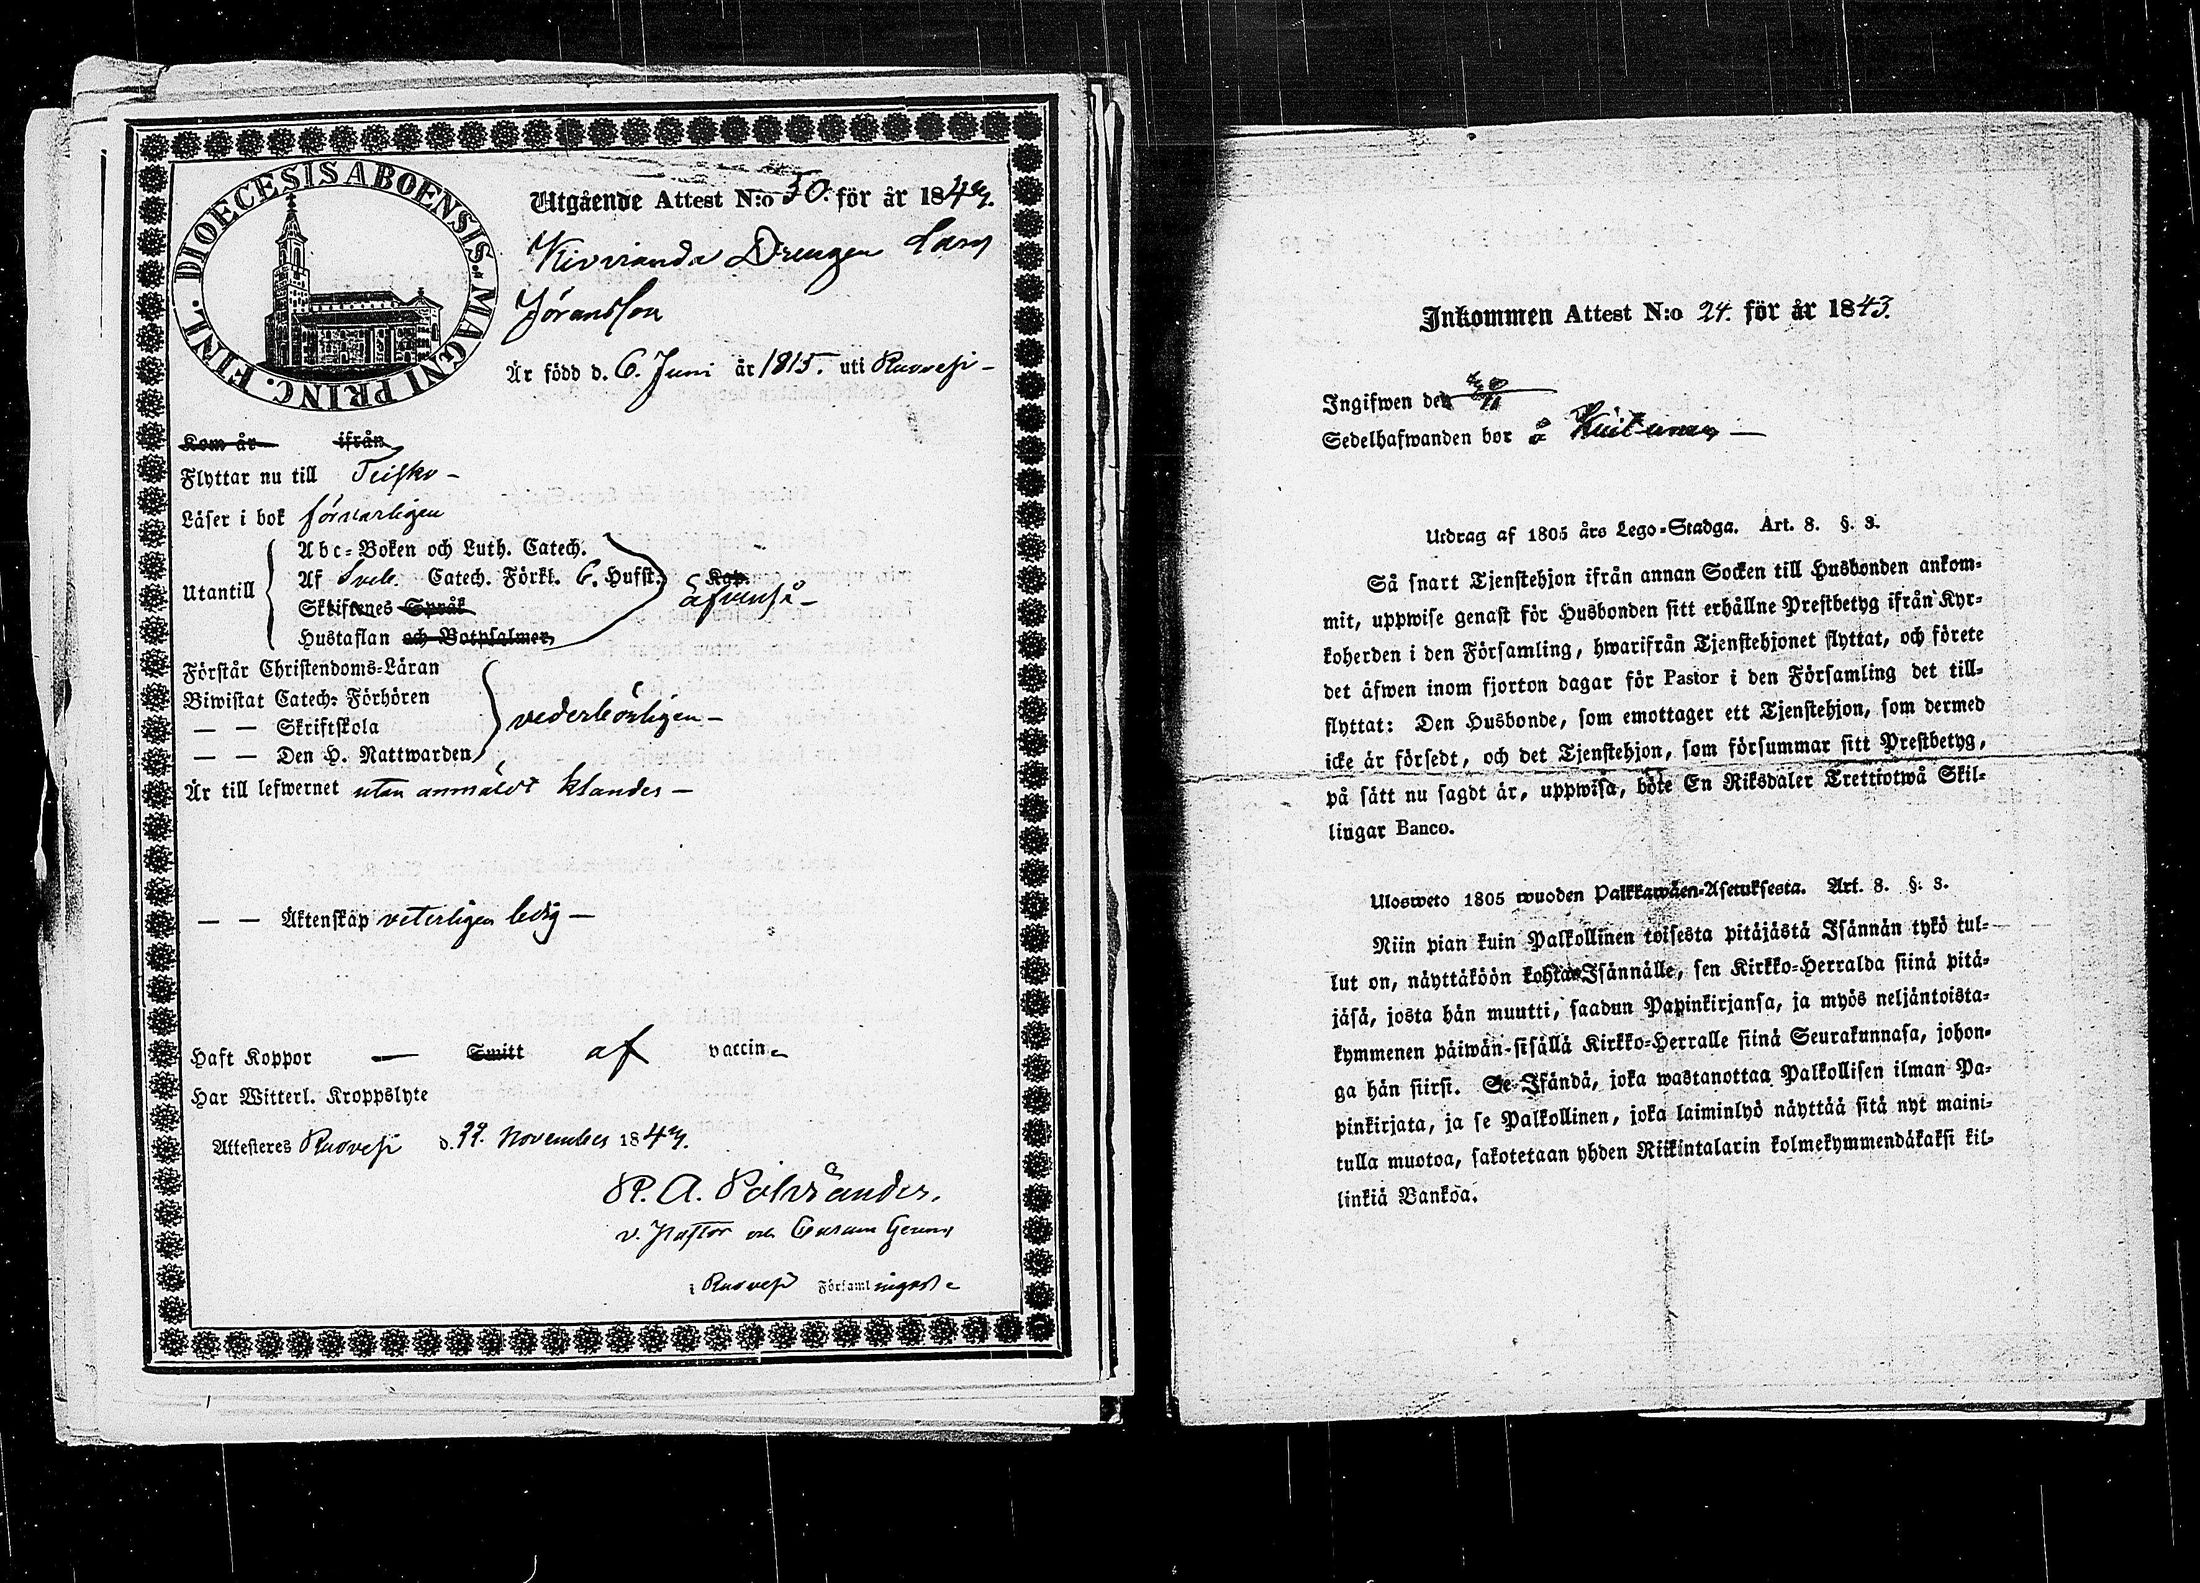 DIOECESIS ABOENSIS. MAGNI PRINC. FINL.
Utgående Attest N:o 50. för år 1843.
Drengen Lars
Jöransson
Är född d. 6. Juni år 1815. uti Ruovesi –
Kom år ifrån
Flyttar nu till Teisko –
Läser i bok försvarligen
Utantill
Abc-Boken och Luth. Catech.
Af Sveb. Catech. Förkl. 6. Hufst. Kap.
Skriftenes Språk äfvenså –
Hustaflan och Botpsalmer,
Förstår Christendoms-Läran
Biwistat Catech: Förhören
— — Skriftskola vederbörligen –
— — Den H. Nattwarden
Är till lefwernet utan anmäldt klander –
— — Äktenskap veterligen ledig –
Haft Koppor — Smitt af vaccine
Har Witterl. Kroppslyte
Attesteres Ruovesi d. 22. November 1843.
v. Pastor och
i Ruovesi Församlingar
Inkommen Attest N:o 24. för år 1843.
Ingifwen den
Sedelhafwanden bor å
Utdrag af 1805 års Lego-Stadga. Art. 8. §. 3.
Så snart Tjenstehjon ifrån annan Socken till Husbonden ankom-
mit, uppwise genast för Husbonden sitt erhållne Prestbetyg ifrån Kyr-
koherden i den Församling, hwarifrån Tjenstehjonet flyttat, och förete
det äfwen inom fjorton dagar för Pastor i den Församling det till-
flyttat: Den Husbonde, som emottager ett Tjenstehjon, som dermed
icke är försedt, och det Tjenstehjon, som försummar sitt Prestbetyg,
på sätt nu sagdt är, uppwisa, böte En Riksdaler Trettiotwå Skil-
lingar Banco.
Ulosweto 1805 wuoden Palkkawäen-Asetuksesta. Art. 8. §. 3.
Niin pian kuin Palkollinen toisesta pitäjästä Isännän tykö tul-
lut on, näyttäköön kohta Isännälle, sen Kirkko-Herralda siinä pitä-
jäsä, josta hän muutti, saadun Papinkirjansa, ja myös neljäntoista-
kymmenen päiwän-sisällä Kirkko-Herralle siinä Seurakunnasa, johon-
ga hän siirsi. Se Isändä, joka wastanottaa Palkollisen ilman Pa-
pinkirjata, ja se Palkollinen, joka laiminlyö näyttää sitä nyt maini-
tulla muotoa, sakotetaan yhden Riikintalarin kolmekymmendäkaksi kil-
linkiä Bankoa.